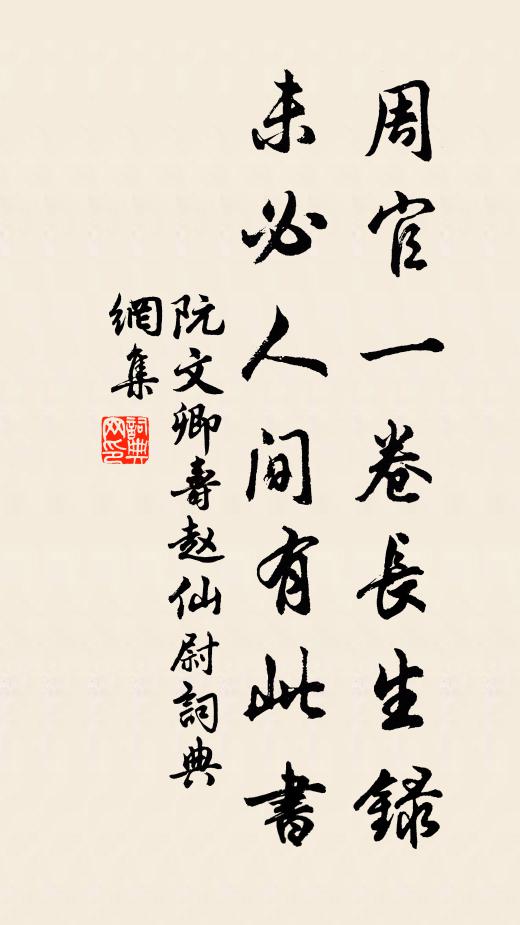 周官一卷長生錄
未必人間有此書
阮文卿壽赵仙尉詞典
網集
詞典網印